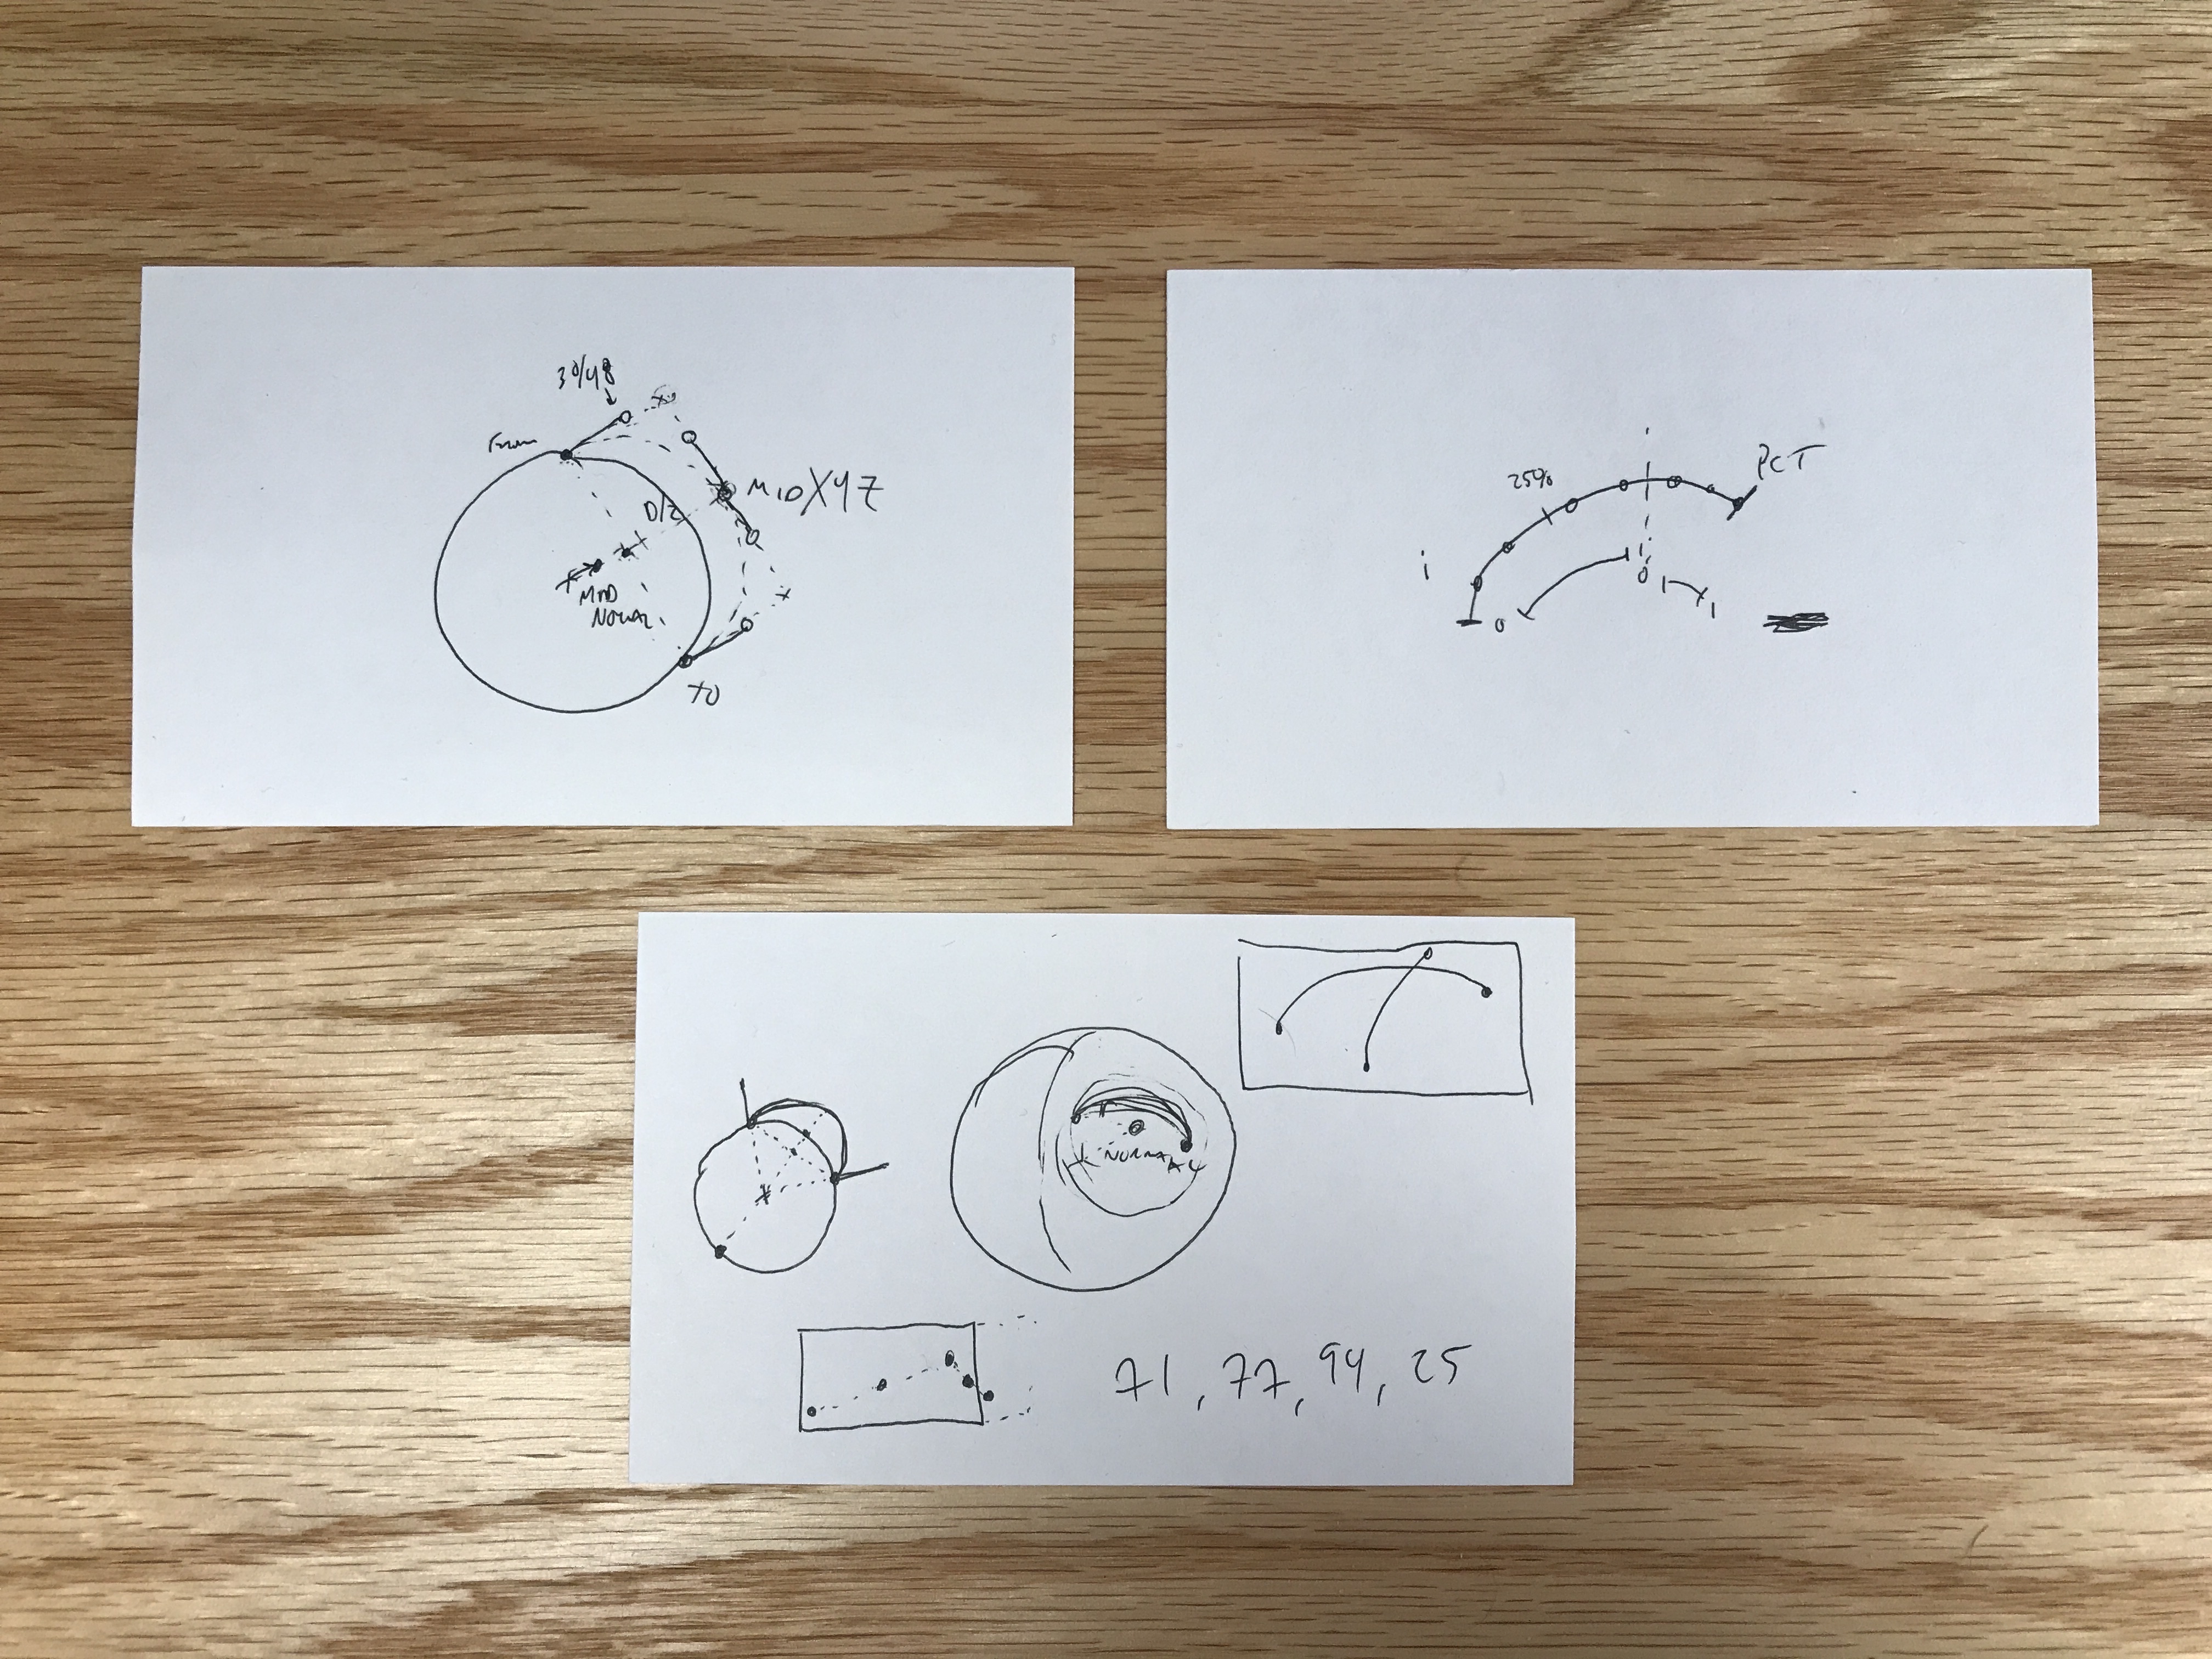 30/48
From
MID XYZ
D/2
MID
NORMAL
TO
25%
PCT
i
0
1
0
1
NORMAL
71, 77, 94, 25